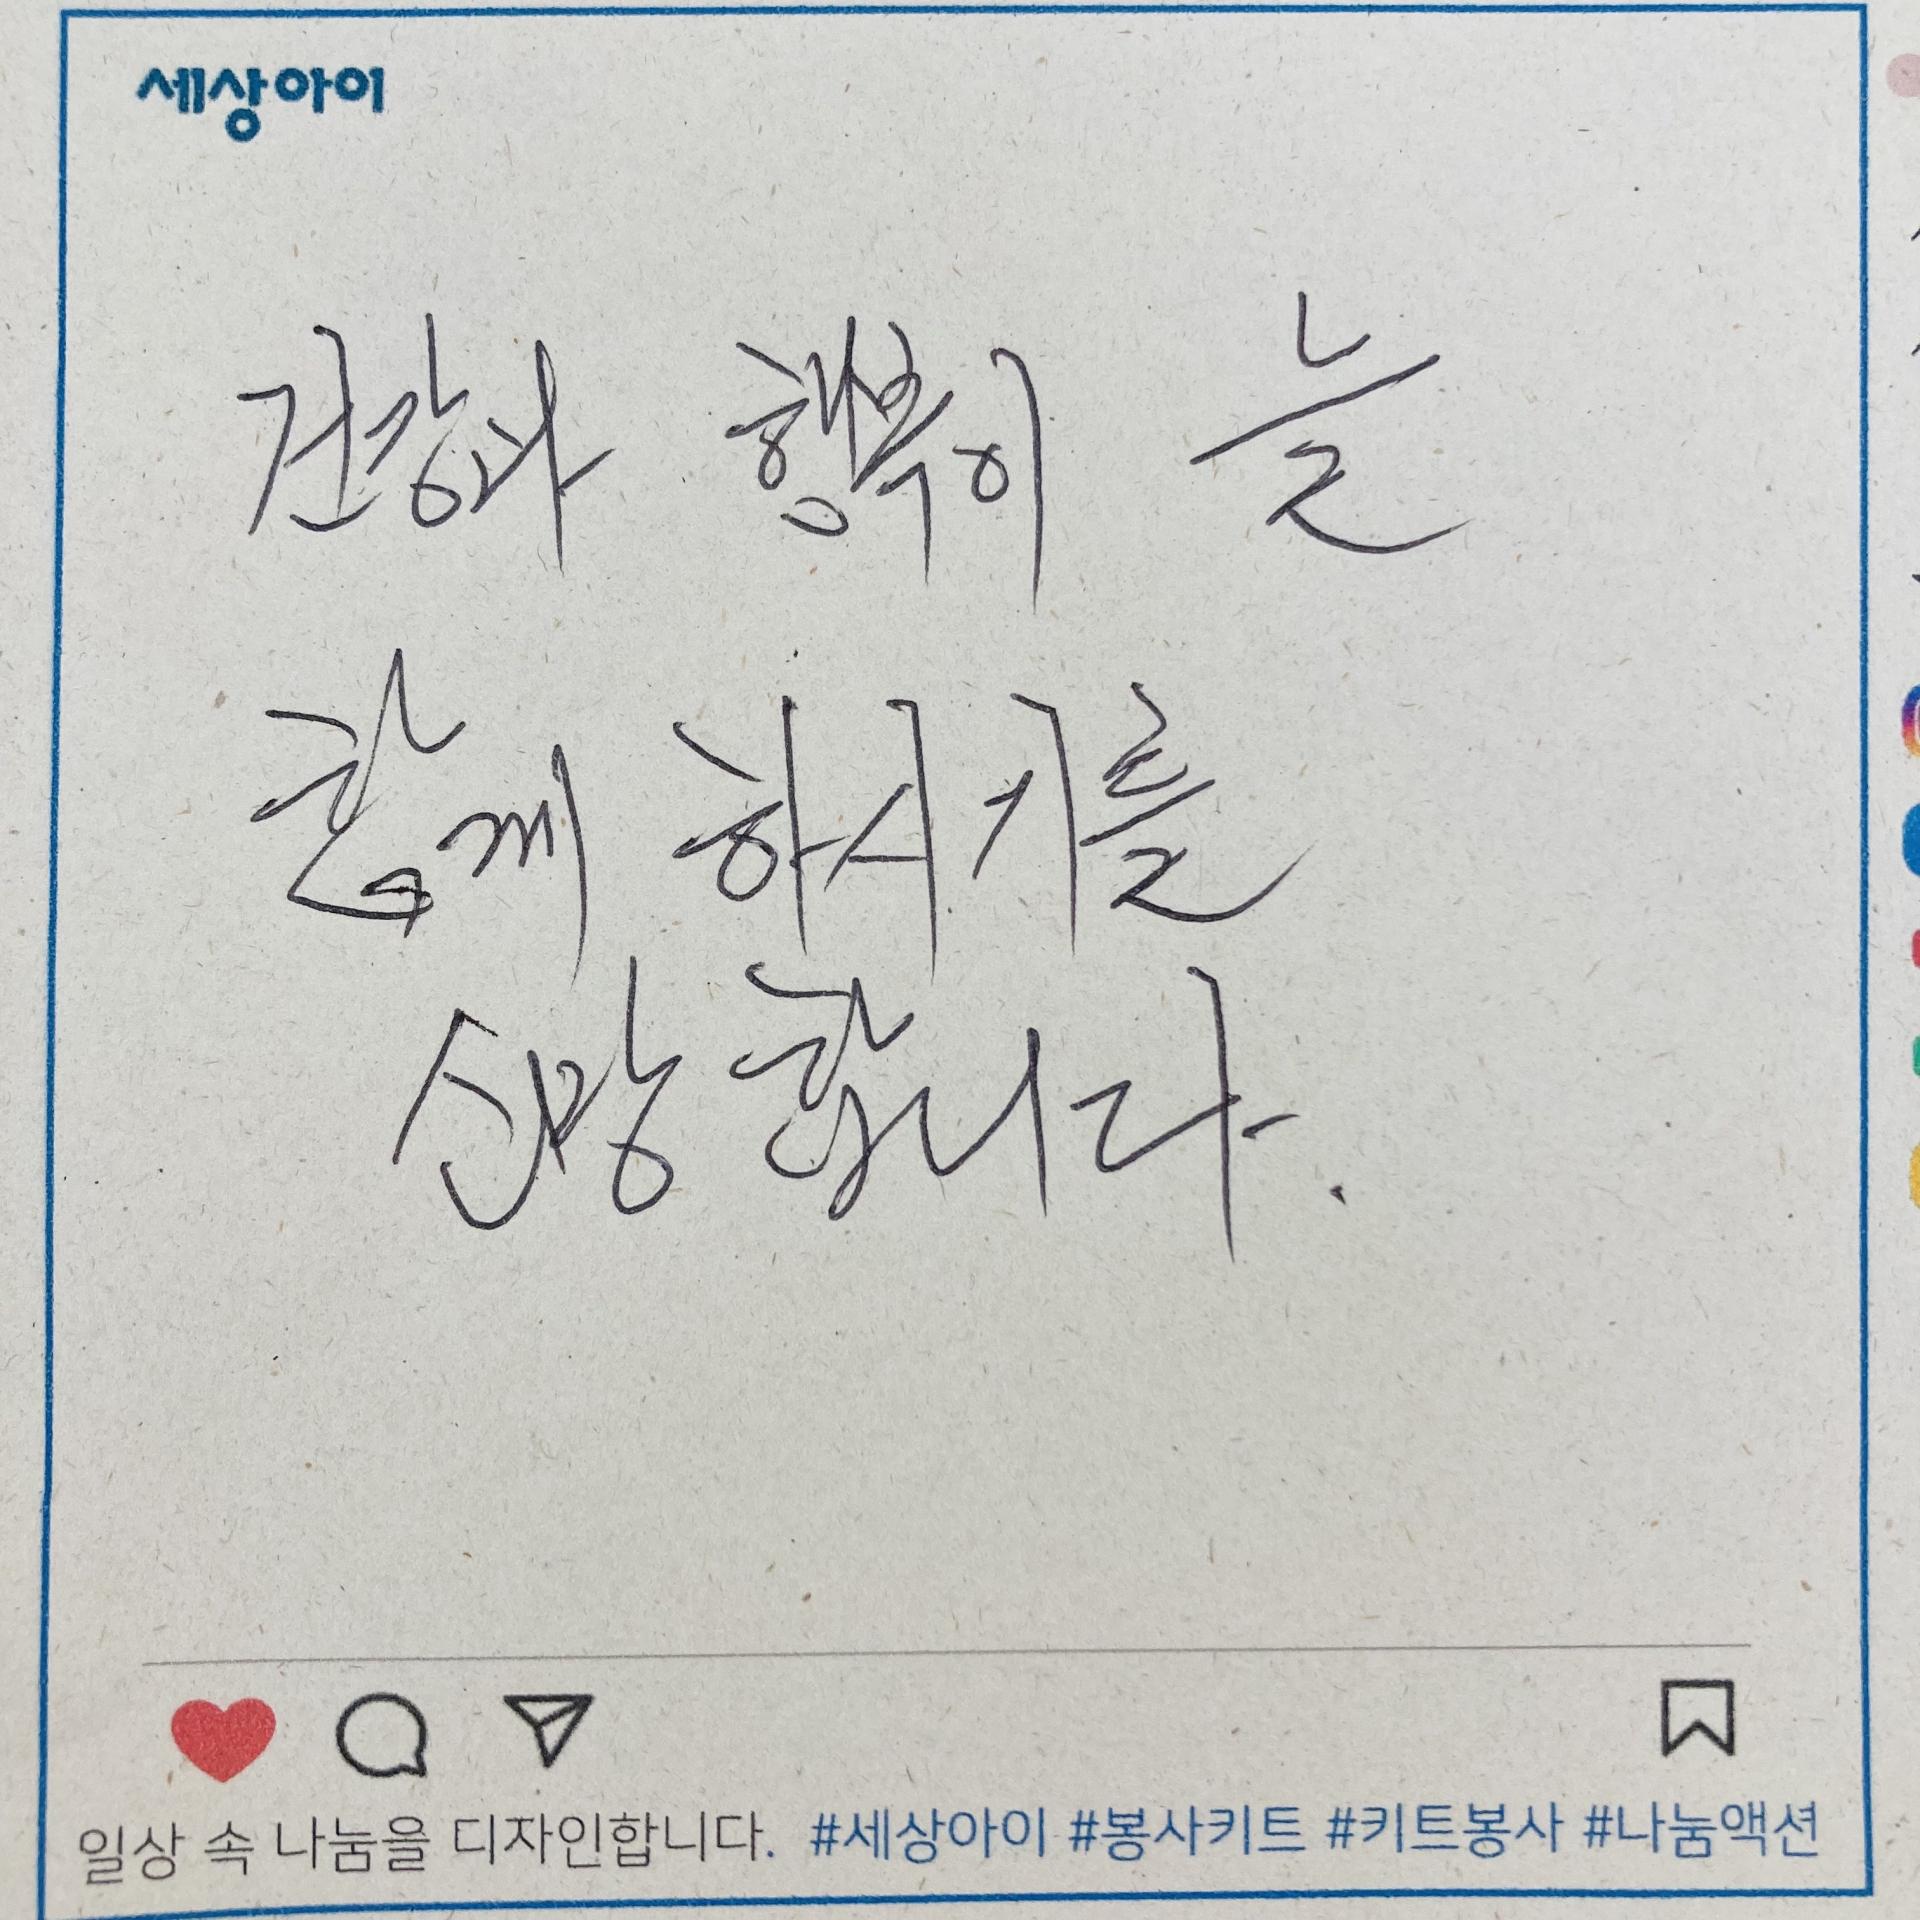 세상아이
건강과 행복이 늘
함께 하시기를
소망합니다.
일상 속 나눔을 디자인합니다. #세상아이 #봉사키트 #키트봉사 #나눔액션